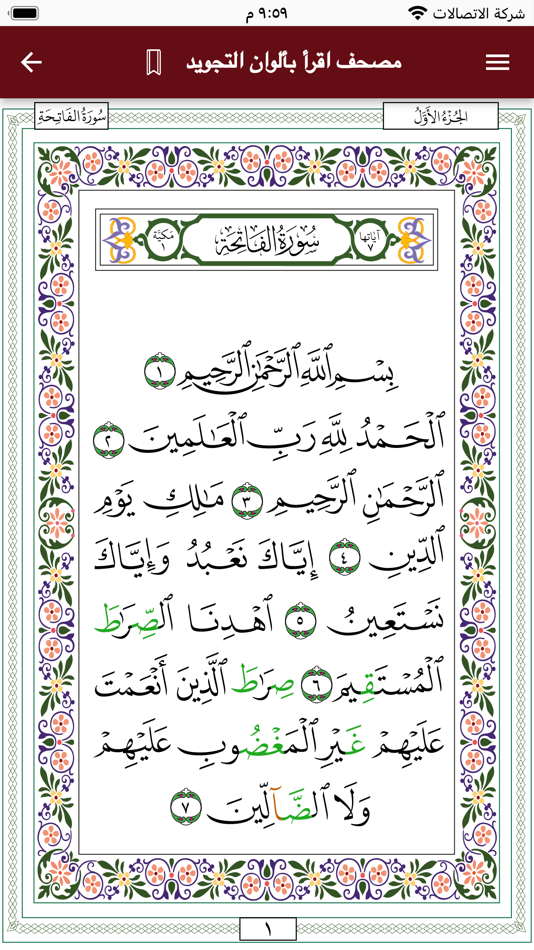 شركة الاتصالات ٩:٥٩ م
مصحف اقرأ بألوان التجويد
الجُزْءُ الأَوَّلُ سُورَةُ الفَاتِحَةِ
آيَاتُهَا ٧ سُورَةُ الْفَاتِحَةِ مَكِيَّة ١
بِسْمِ اللَّهِ الرَّحْمَٰنِ الرَّحِيمِ ١
الْحَمْدُ لِلَّهِ رَبِّ الْعَالَمِينَ ٢
الرَّحْمَٰنِ الرَّحِيمِ ٣ مَالِكِ يَوْمِ
الدِّينِ ٤ إِيَّاكَ نَعْبُدُ وَإِيَّاكَ
نَسْتَعِينُ ٥ اهْدِنَا الصِّرَاطَ
الْمُسْتَقِيمَ ٦ صِرَاطَ الَّذِينَ أَنْعَمْتَ
عَلَيْهِمْ غَيْرِ الْمَغْضُوبِ عَلَيْهِمْ
وَلَا الضَّآلِّينَ ٧
١